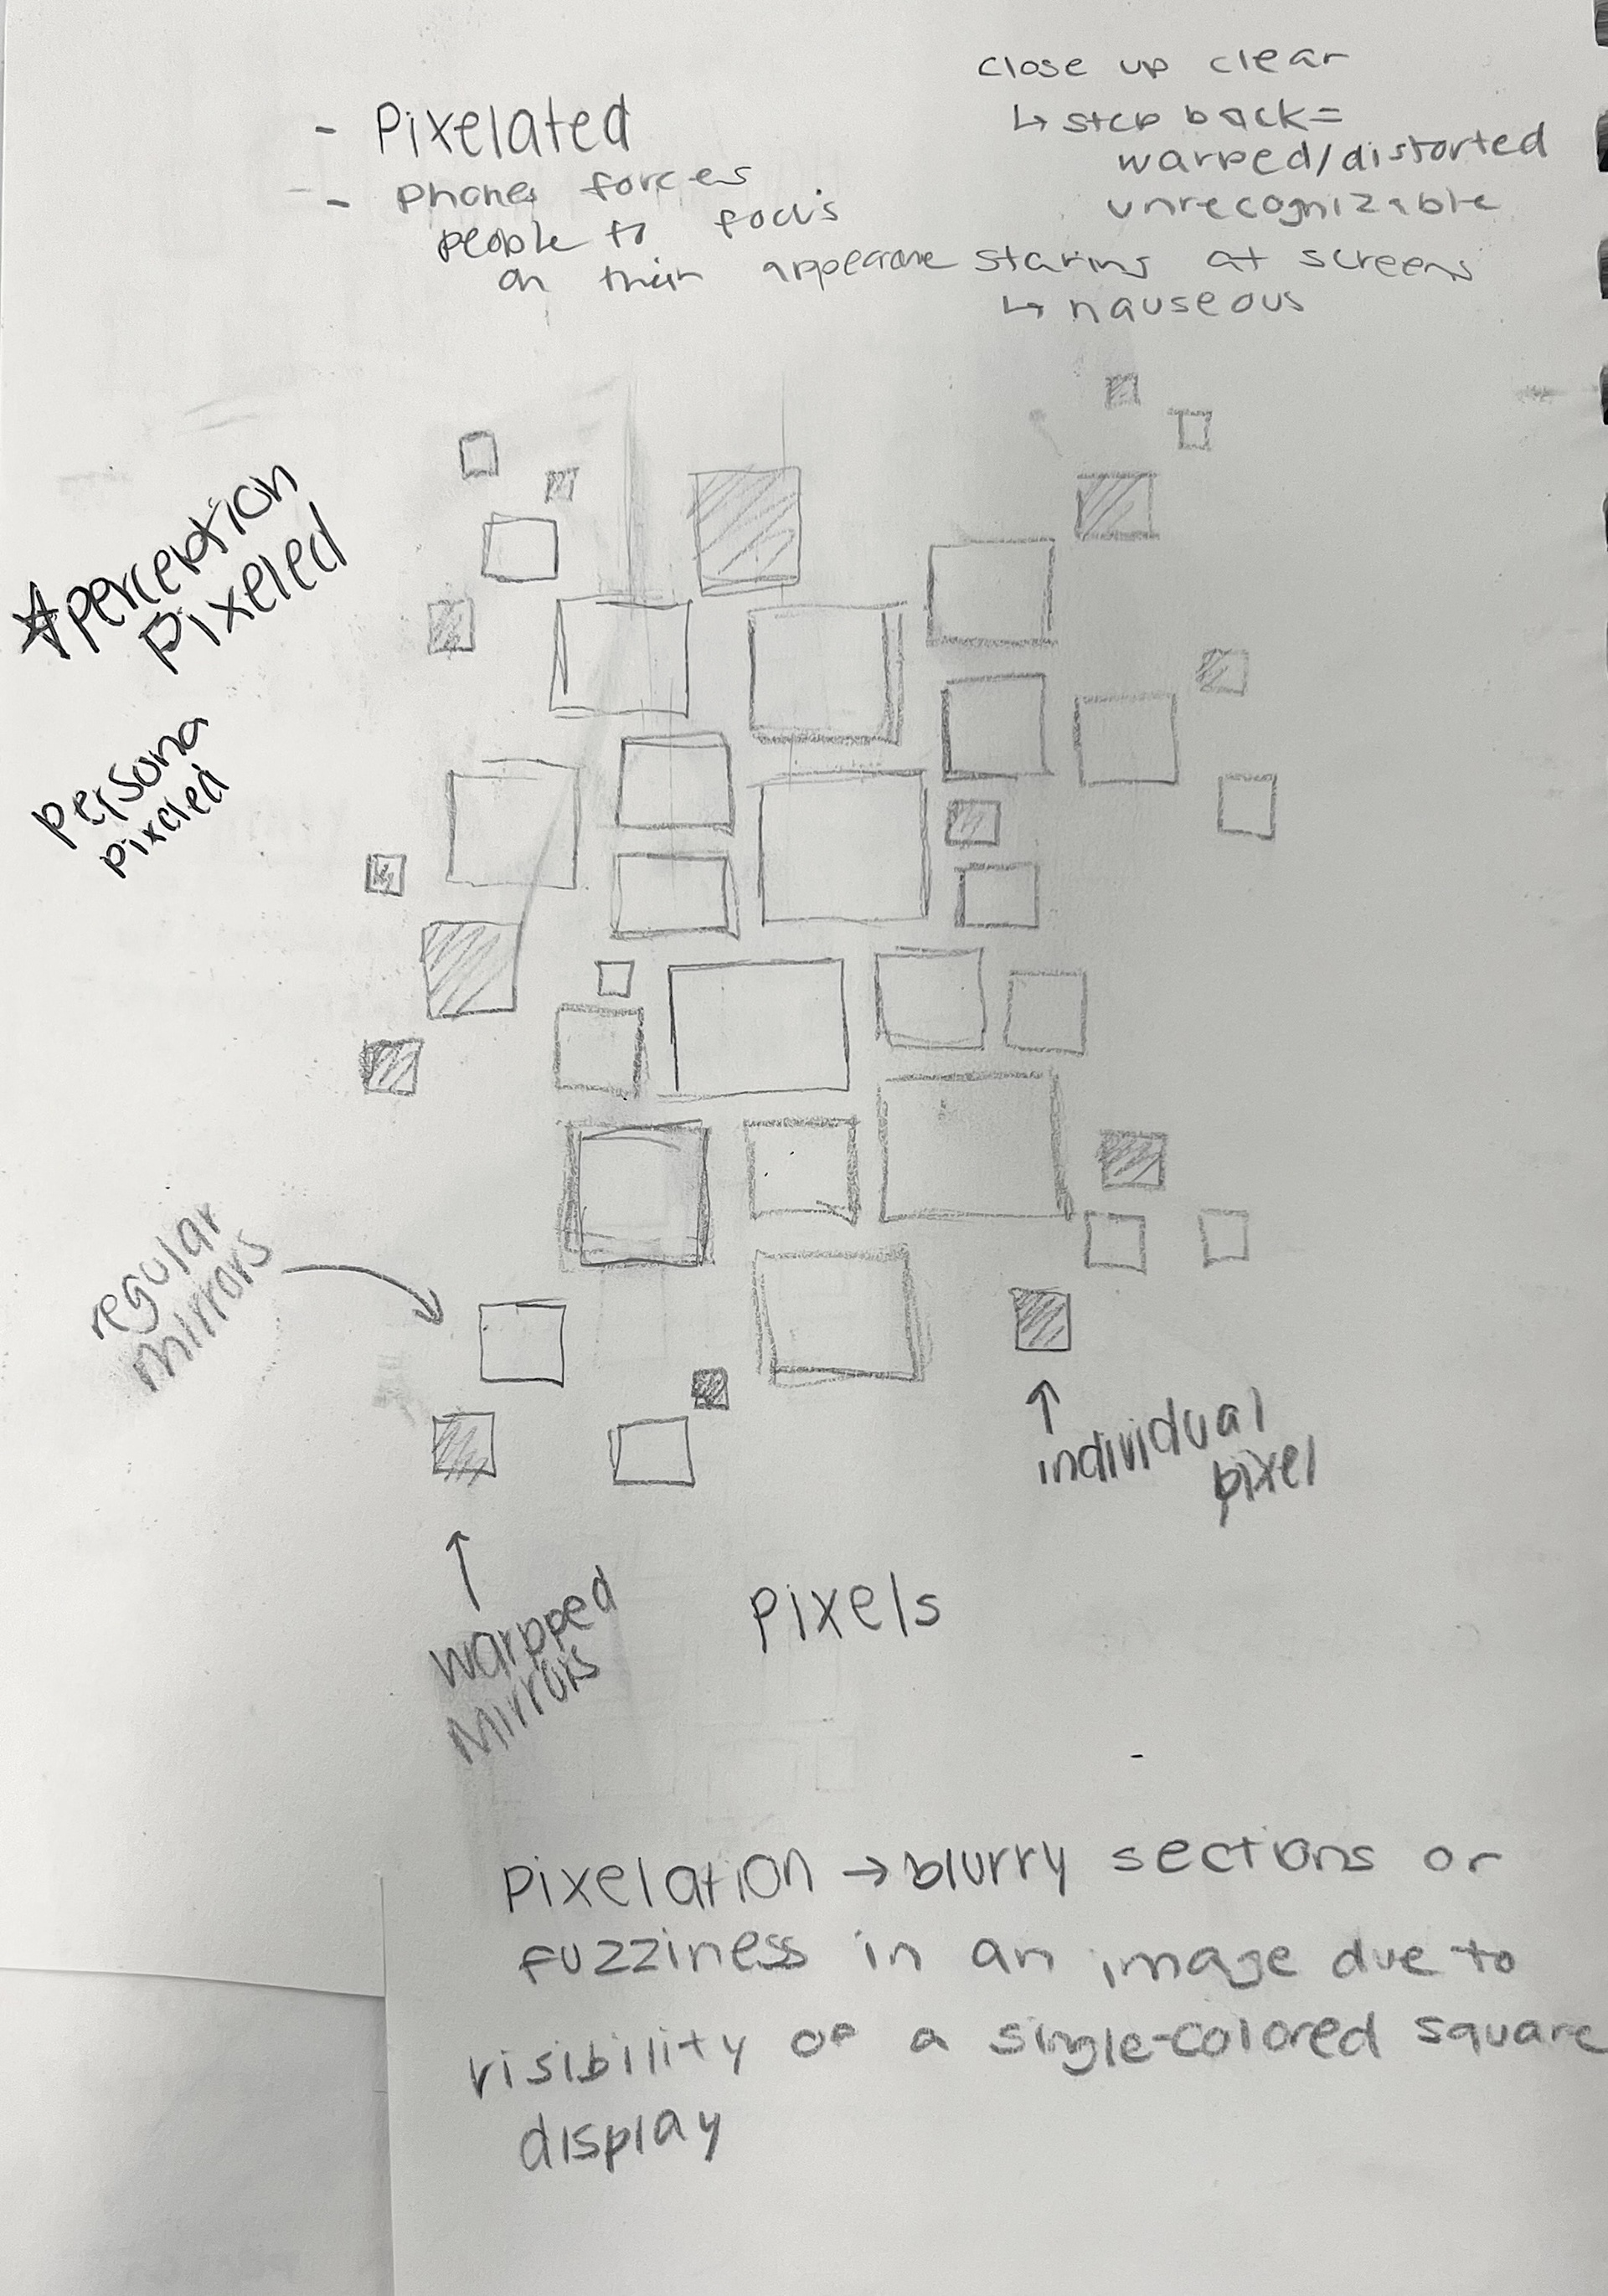 - Pixelated
- phones forces
people to focus
on their appearance
close up clear
↳ step back=
warped/distorted
unrecognizable
staring at screens
↳ nauseous
☆perception
pixeled
persona
pixeled
regular
mirrors
individual
pixel
warpped
mirrors
pixels
pixelation → blurry sections or
fuzziness in an image due to
visibility of a single-colored square
display